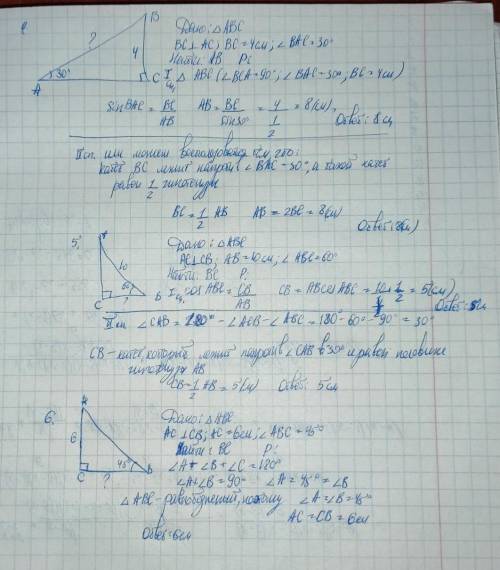 4
B
?
4
30°
A
C
Дано: △ABC
BC⊥AC; BC=4см; ∠BAC=30°
Найти: AB Р:
I сп. △ ABC (∠BCA=90°; ∠BAC=30°; BC=4см)
sinBAC = BC/AB AB = BC/sin30° = 4/(1/2) = 8(см). Ответ: 8 см
II сп. или можем воспользоваться тем, что:
катет BC лежит напротив ∠BAC=30°, а такой катет
равен 1/2 гипотенузы
BC = 1/2 AB AB = 2BC = 8(см)
Ответ: 8(см)
5.
A
10
60°
C
?
B
Дано: △ABC
AC⊥CB; AB=10см; ∠ABC=60°
Найти: BC Р:
I сп. cosABC = CB/AB CB = ABcosABC = 10·1/2 = 5(см) Ответ: 5см
II сп ∠CAB = 180° - ∠ACB - ∠ABC = 180° - 60° - 90° = 30°
CB - катет, который лежит напротив ∠CAB в 30° и равен половине
гипотенузы AB
CB = 1/2 AB = 5(см) Ответ: 5см
6.
A
6
45°
C
?
B
Дано: △ABC
AC⊥CB; AC=6см; ∠ABC=45°
Найти: BC Р:
∠A+∠B+∠C=180°
∠A+∠B=90° ∠A=45°=∠B
△ABC - равнобедренный, поэтому ∠A=∠B=45°
AC=CB=6см
Ответ: 6см